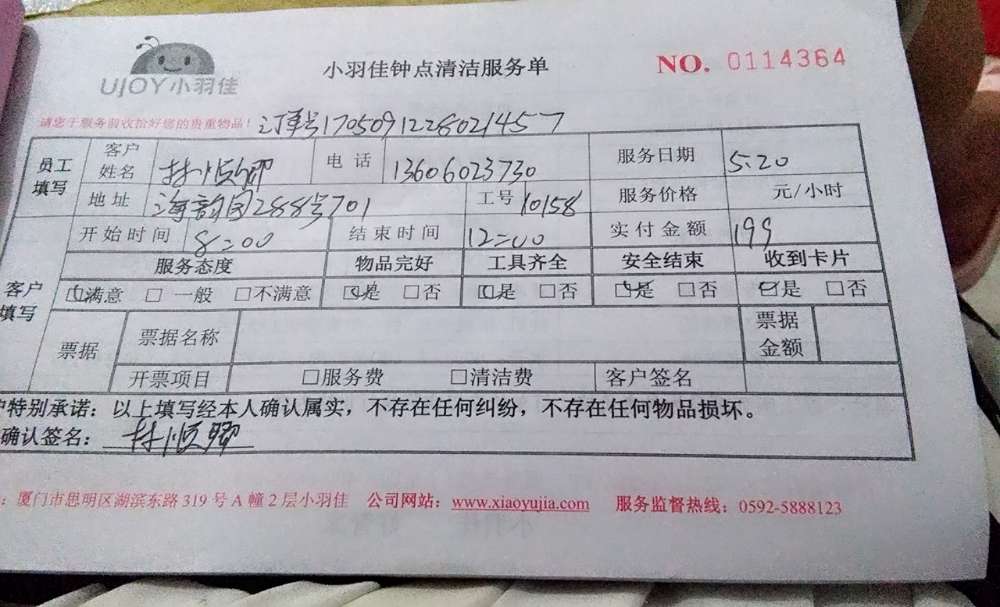 UJOY小羽佳
小羽佳钟点清洁服务单
NO. 0114364
请您于服务前收拾好您的贵重物品！ 订单号1705091228021457
员工填写 客户姓名 林顺 电话 13606023730 服务日期 5.20
地址 海韵园288号701 工号 10158 服务价格 元/小时
开始时间 8:00 结束时间 12:00 实付金额 199
客户填写 服务态度 物品完好 工具齐全 安全结束 收到卡片
☑满意 □ 一般 □不满意 ☑是 □否 ☑是 □否 ☑是 □否 ☑是 □否
票据 票据名称 票据金额
开票项目 □服务费 □清洁费 客户签名
户特别承诺：以上填写经本人确认属实，不存在任何纠纷，不存在任何物品损坏。
确认签名： 林顺
：厦门市思明区湖滨东路 319 号 A 幢 2 层小羽佳 公司网站：www.xiaoyujia.com 服务监督热线：0592-5888123